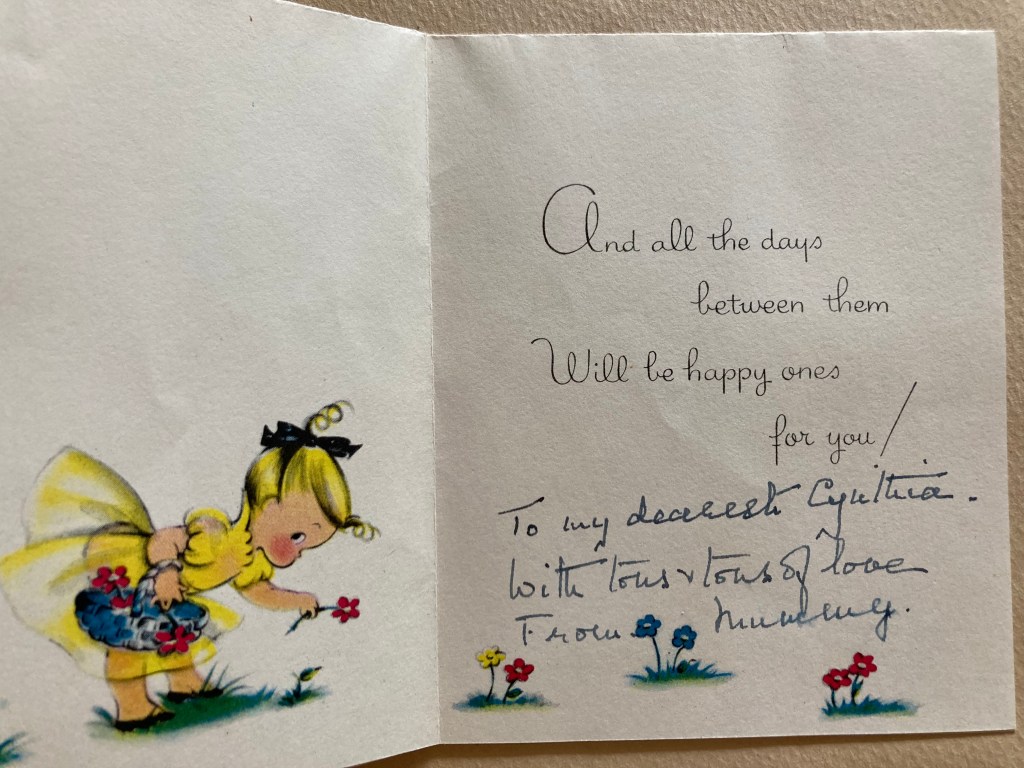 And all the days
between them
Will be happy ones
for you/
To my dearest Cynthia.
With tons & tons of love
From Mummy.